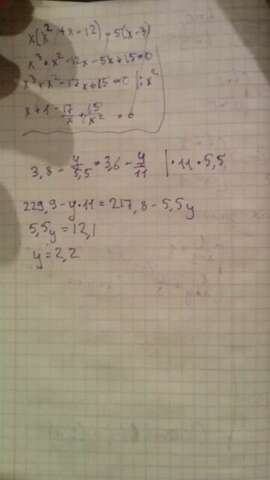 x(x²+x-12)=5(x-3)
x³+x²-12x-5x+15=0
x³+x²-17x+15=0 |:x²
x+1-17/x+15/x²=0
3,8-y/5,5=3,6-y/11 |·11·5,5
229,9-y·11=217,8-5,5y
5,5y=12,1
y=2,2